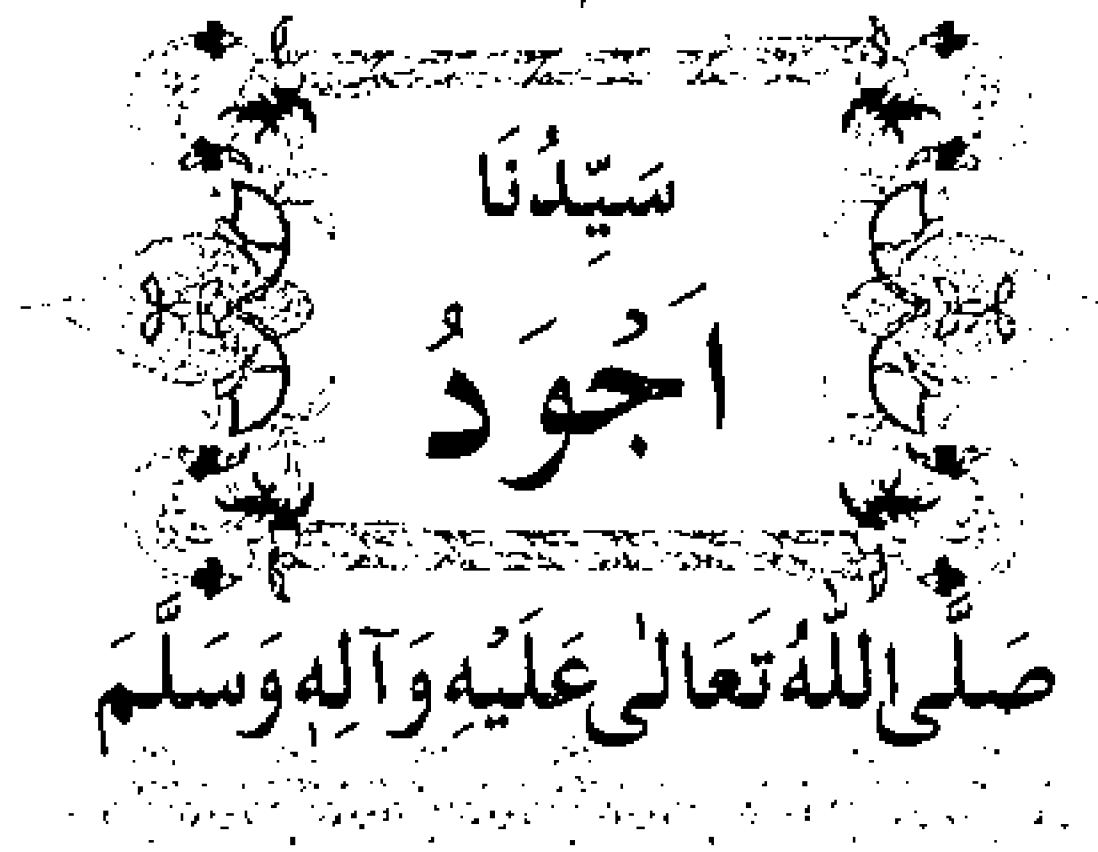 سَيِّدُنَا
اَجُوَدُ
صَلَّى اللّٰهُ تَعَالٰى عَلَيْهِ وَآلِهٖ وَسَلَّمَ